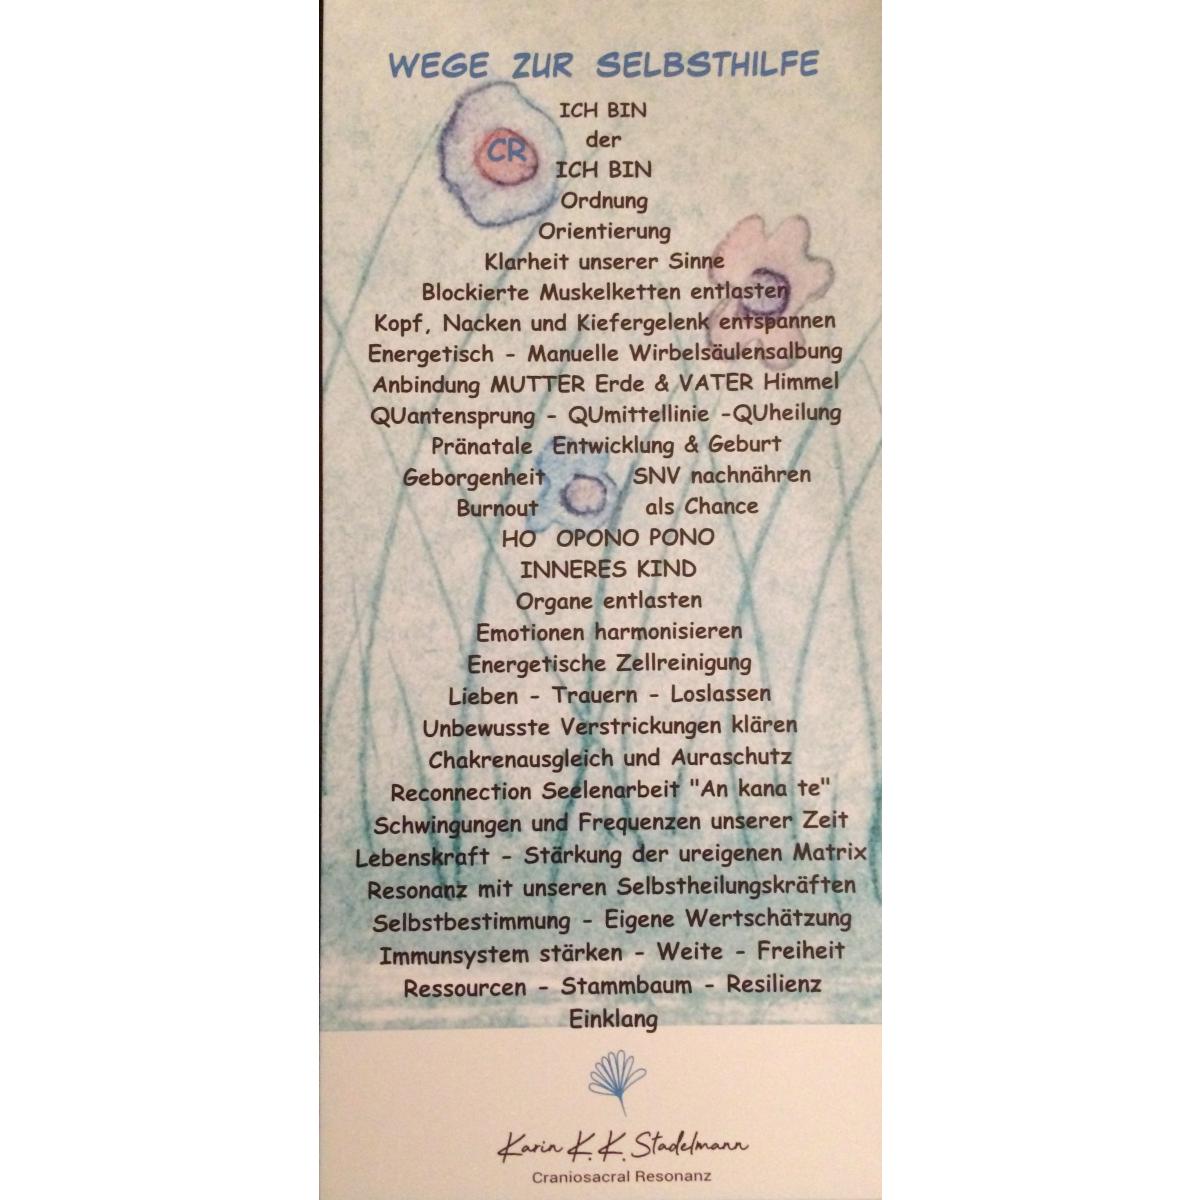 WEGE ZUR SELBSTHILFE
ICH BIN
CR
der
ICH BIN
Ordnung
Orientierung
Klarheit unserer Sinne
Blockierte Muskelketten entlasten
Kopf, Nacken und Kiefergelenk entspannen
Energetisch - Manuelle Wirbelsäulensalbung
Anbindung MUTTER Erde & VATER Himmel
QUantensprung - QUmittellinie -QUheilung
Pränatale Entwicklung & Geburt
Geborgenheit SNV nachnähren
Burnout als Chance
HO OPONO PONO
INNERES KIND
Organe entlasten
Emotionen harmonisieren
Energetische Zellreinigung
Lieben - Trauern - Loslassen
Unbewusste Verstrickungen klären
Chakrenausgleich und Auraschutz
Reconnection Seelenarbeit "An kana te"
Schwingungen und Frequenzen unserer Zeit
Lebenskraft - Stärkung der ureigenen Matrix
Resonanz mit unseren Selbstheilungskräften
Selbstbestimmung - Eigene Wertschätzung
Immunsystem stärken - Weite - Freiheit
Ressourcen - Stammbaum - Resilienz
Einklang
Karin K. K. Stadelmann
Craniosacral Resonanz